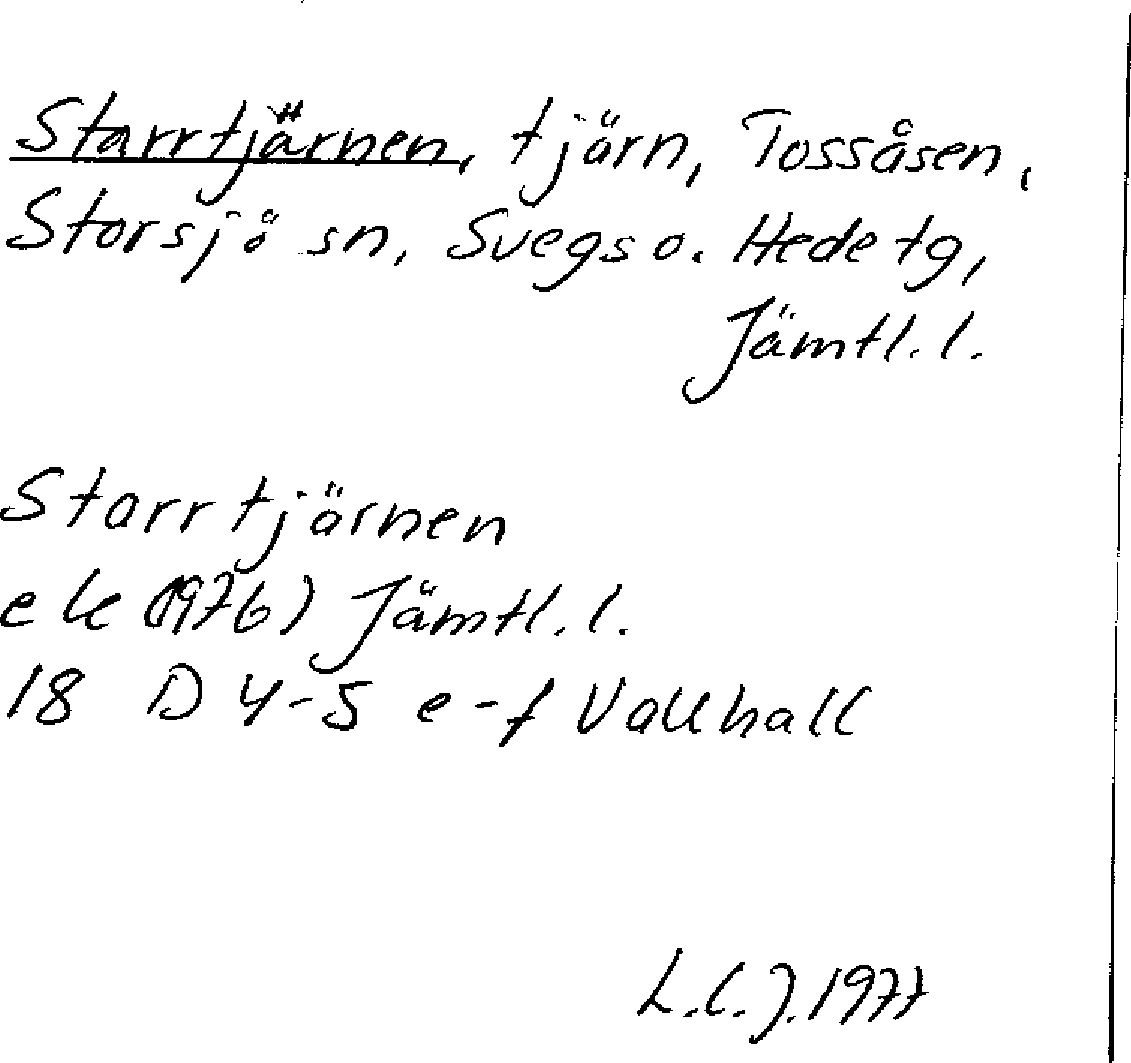 Starrtjärnen, tjärn, Tossåsen,
Storsjö sn, Svegs o. Hede tg,
Jämtl. l.
Starrtjärnen
ek (1976) Jämtl. l.
18 D 4-5 e-f Vallhall
L.C.J. 1977